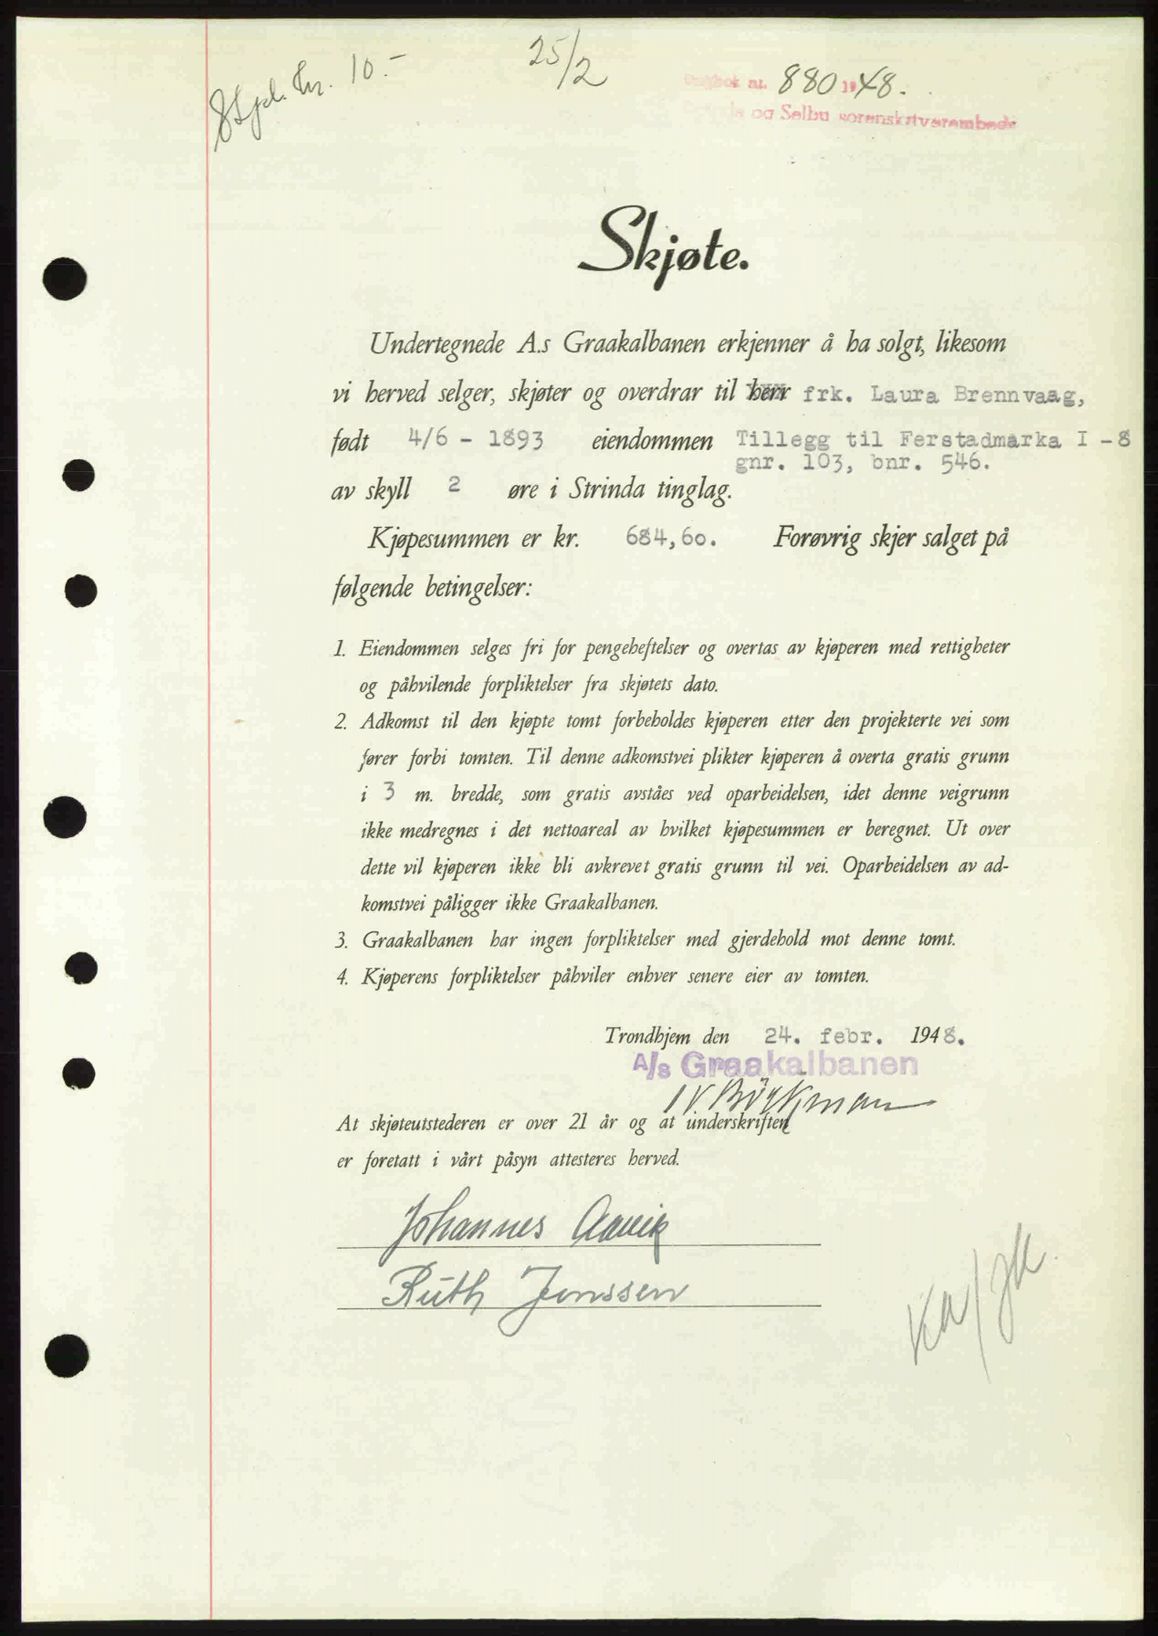 25/2
kr. 10.-
880 1948.
og Selbu sorenskriverembede
Skjøte.
Undertegnede A.s Graakalbanen erkjenner å ha solgt, likesom
vi herved selger, skjøter og overdrar til herr frk. Laura Brennvaag,
født 4/6 - 1893 eiendommen Tillegg til Ferstadmarka I - 8
gnr. 103, bnr. 546.
av skyll 2 øre i Strinda tinglag.
Kjøpesummen er kr. 684,60. Forøvrig skjer salget på
følgende betingelser:
1. Eiendommen selges fri for pengeheftelser og overtas av kjøperen med rettigheter
og påhvilende forpliktelser fra skjøtets dato.
2. Adkomst til den kjøpte tomt forbeholdes kjøperen etter den projekterte vei som
fører forbi tomten. Til denne adkomstvei plikter kjøperen å overta gratis grunn
i 3 m. bredde, som gratis avståes ved oparbeidelsen, idet denne veigrunn
ikke medregnes i det nettoareal av hvilket kjøpesummen er beregnet. Ut over
dette vil kjøperen ikke bli avkrevet gratis grunn til vei. Oparbeidelsen av ad-
komstvei påligger ikke Graakalbanen.
3. Graakalbanen har ingen forpliktelser med gjerdehold mot denne tomt.
4. Kjøperens forpliktelser påhviler enhver senere eier av tomten.
Trondhjem den 24. febr. 1948.
A/s Graakalbanen
At skjøteutstederen er over 21 år og at underskriften
er foretatt i vårt påsyn attesteres herved.
Johannes Aavik
Ruth Jenssen